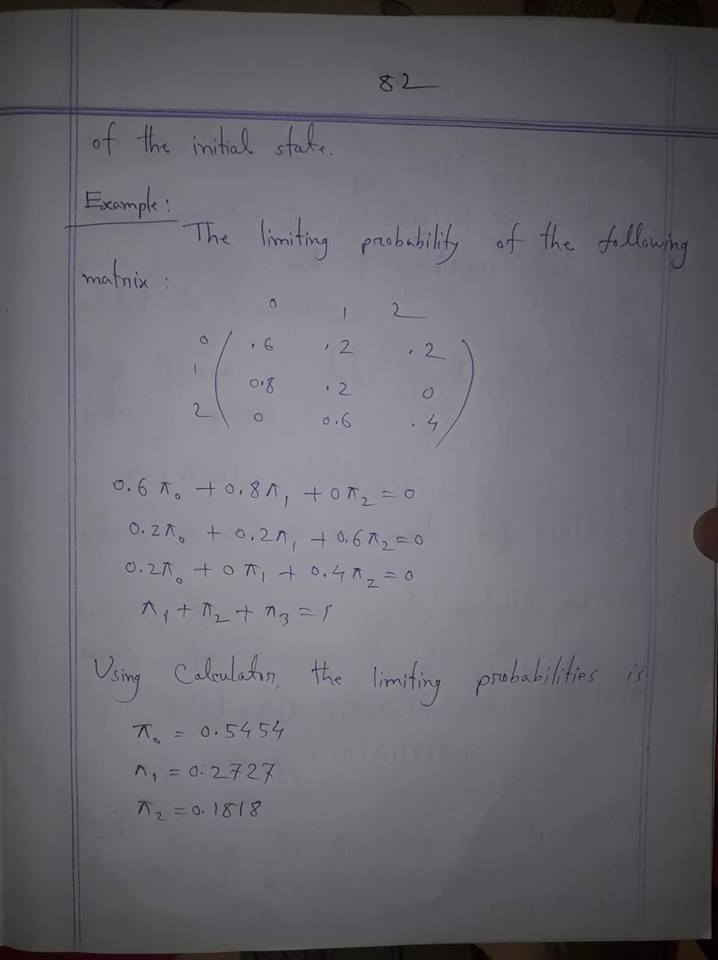 82
of the initial state.
Example:
The limiting probability of the following
matrix :
0 1 2
0 .6 .2 .2
1 0.8 .2 0
2 0 0.6 .4
0.6 π₀ + 0.8π₁ + 0π₂ = 0
0.2π₀ + 0.2π₁ + 0.6π₂ = 0
0.2π₀ + 0π₁ + 0.4π₂ = 0
π₁ + π₂ + π₃ = 1
Using Calculator, the limiting probabilities is
π₀ = 0.5454
π₁ = 0.2727
π₂ = 0.1818